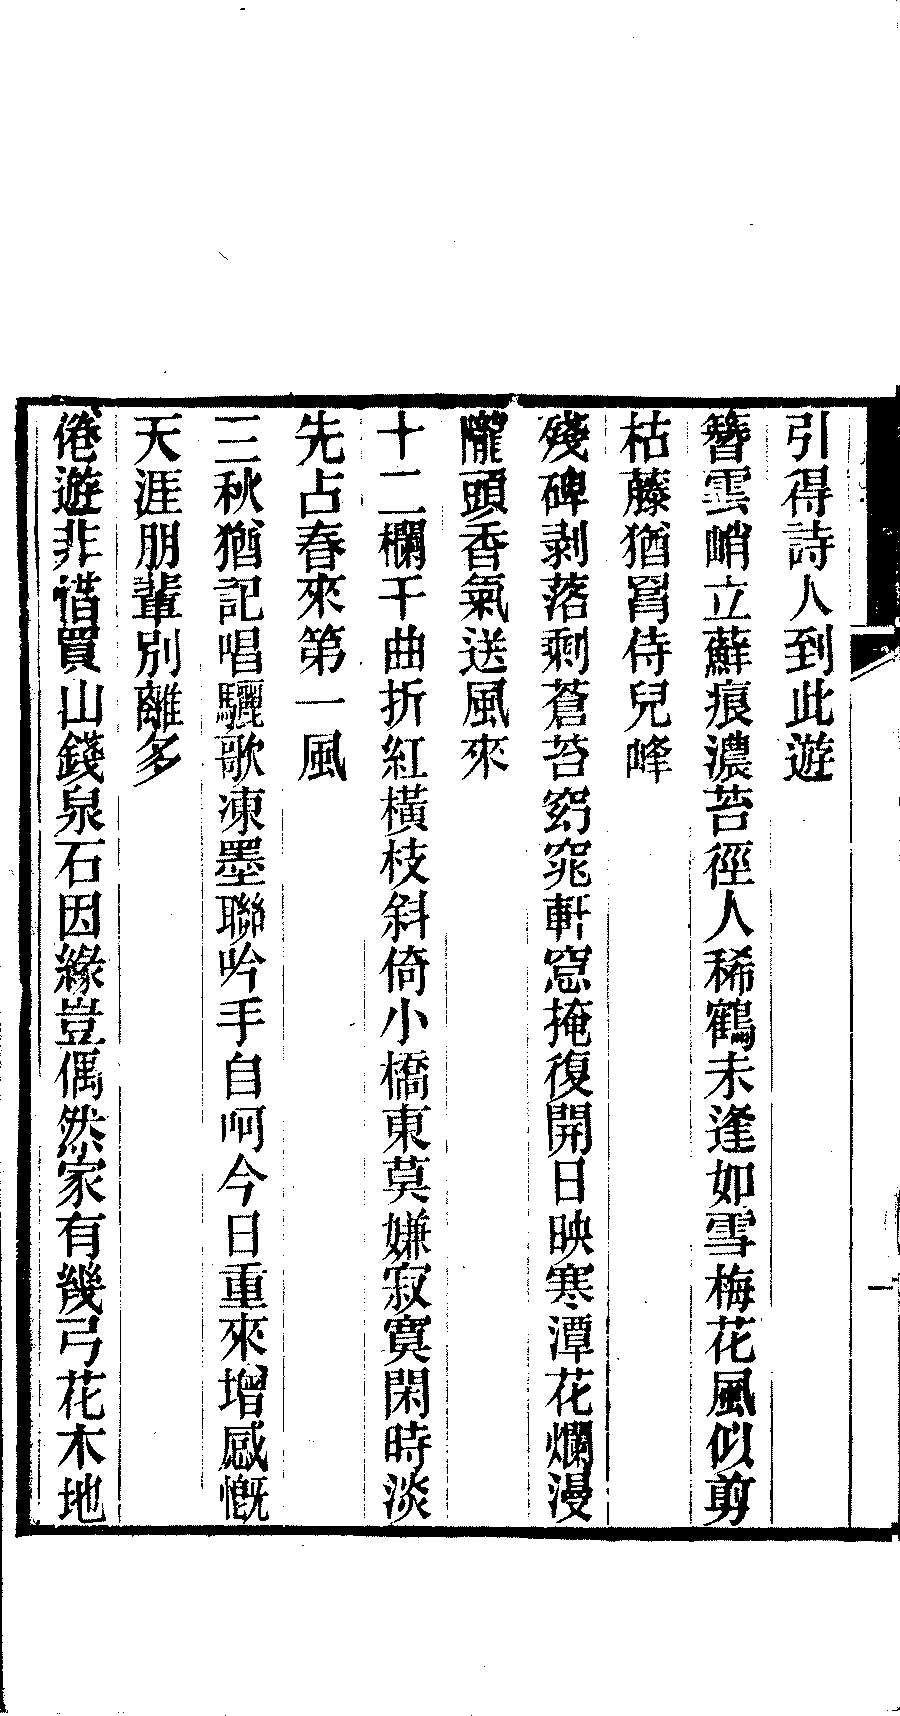 引得詩人到此遊
簪雲峭立蘚痕濃苔徑人稀鶴未逢如雪梅花風似剪
枯藤猶罥侍兒峰
殘碑剥落剩蒼苔窈窕軒窓掩復開日映寒潭花爛漫
隴頭香氣送風來
十二欄干曲折紅橫枝斜倚小橋東莫嫌寂寞閑時淡
先占春來第一風
三秋猶記唱驪歌凍墨聯吟手自呵今日重來增感慨
天涯朋輩別離多
倦遊非惜買山錢泉石因緣豈偶然家有幾弓花木地